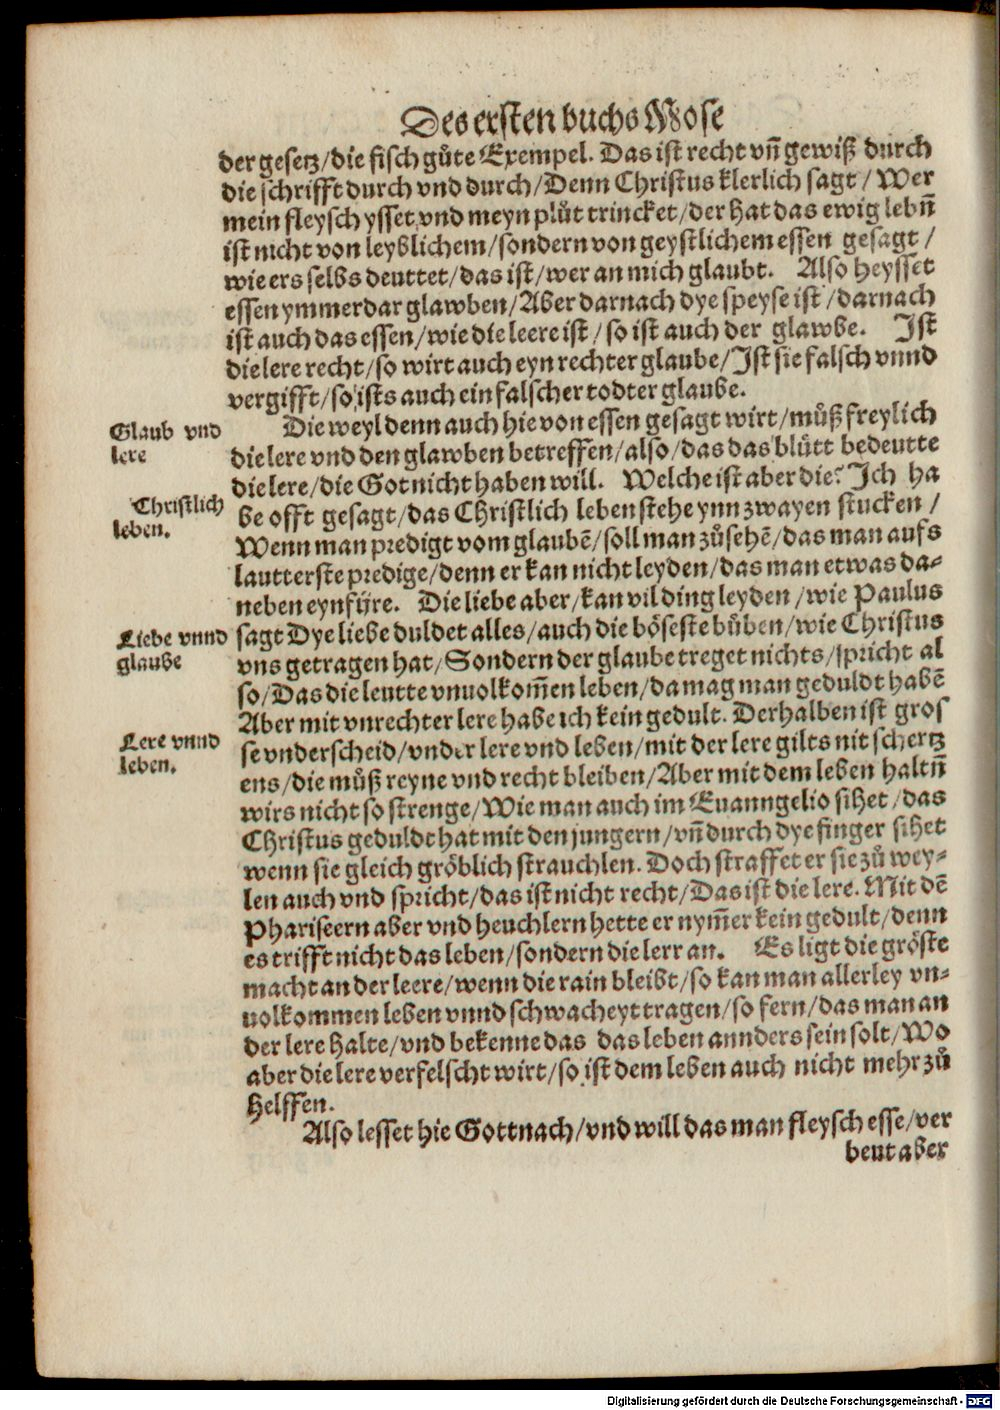 Des ersten buchs Mose
der gesetz/die fisch gůte Exempel. Das ist recht vñ gewiß durch
die schrifft durch vnd durch/Denn Christus klerlich sagt/Wer
mein fleysch ysset vnd meyn plůt trincket/der hat das ewig lebñ
ist nicht von leyblichem/sondern von geystlichem essen gesagt/
wie ers selbs deuttet/das ist/wer an mich glaubt. Also heysset
essen ymmerdar glawben/Aber darnach dye speyse ist/darnach
ist auch das essen/wie die leere ist/so ist auch der glawbe. Ist
die lere recht/so wirt auch eyn rechter glaube/Ist sie falsch vnnd
vergifft/so ists auch ein falscher todter glaube.
Glaub vnd
lere
Die weyl denn auch hie von essen gesagt wirt/můß freylich
die lere vnd den glawben betreffen/also/das das blůtt bedeutte
die lere/die Got nicht haben will. Welche ist aber die? Ich ha
Christlich
leben.
be offt gesagt/das Christlich leben stehe ynn zwayen stucken/
Wenn man predigt vom glaubẽ/soll man zůsehẽ/das man aufs
lautterste predige/denn er kan nicht leyden/das man etwas da-
neben eynfüre. Die liebe aber/kan vil ding leyden/wie Paulus
Liebe vnnd
glaube
sagt Dye liebe duldet alles/auch die böseste bůben/wie Christus
vns getragen hat/Sondern der glaube treget nichts/spricht al
so/Das die leutte vnuolkom̃en leben/da mag man geduldt habẽ
Aber mit vnrechter lere habe ich kein gedult. Derhalben ist gros
Lere vnnd
leben.
se vnderscheid/vnder lere vnd leben/mit der lere gilts nit schertz
ens/die můß reyne vnd recht bleiben/Aber mit dem leben haltñ
wirs nicht so strenge/Wie man auch im Euanngelio sihet/das
Christus geduldt hat mit den jungern/vñ durch dye finger sihet
wenn sie gleich gröblich strauchlen. Doch straffet er sie zů wey-
len auch vnd spricht/das ist nicht recht/Das ist die lere. Mit dẽ
Phariseern aber vnd heuchlern hette er nym̃er kein gedult/denn
es trifft nicht das leben/sondern die lerr an. Es ligt die gröste
macht an der leere/wenn die rain bleibt/so kan man allerley vn-
uolkommen leben vnnd schwacheyt tragen/so fern/das man an
der lere halte/vnd bekenne das das leben annders sein solt/Wo
aber die lere verfelscht wirt/so ist dem leben auch nicht mehr zů
helffen.
Also lesset hie Gott nach/vnd will das man fleysch esse/ver
beut aber
Digitalisierung gefördert durch die Deutsche Forschungsgemeinschaft - DFG